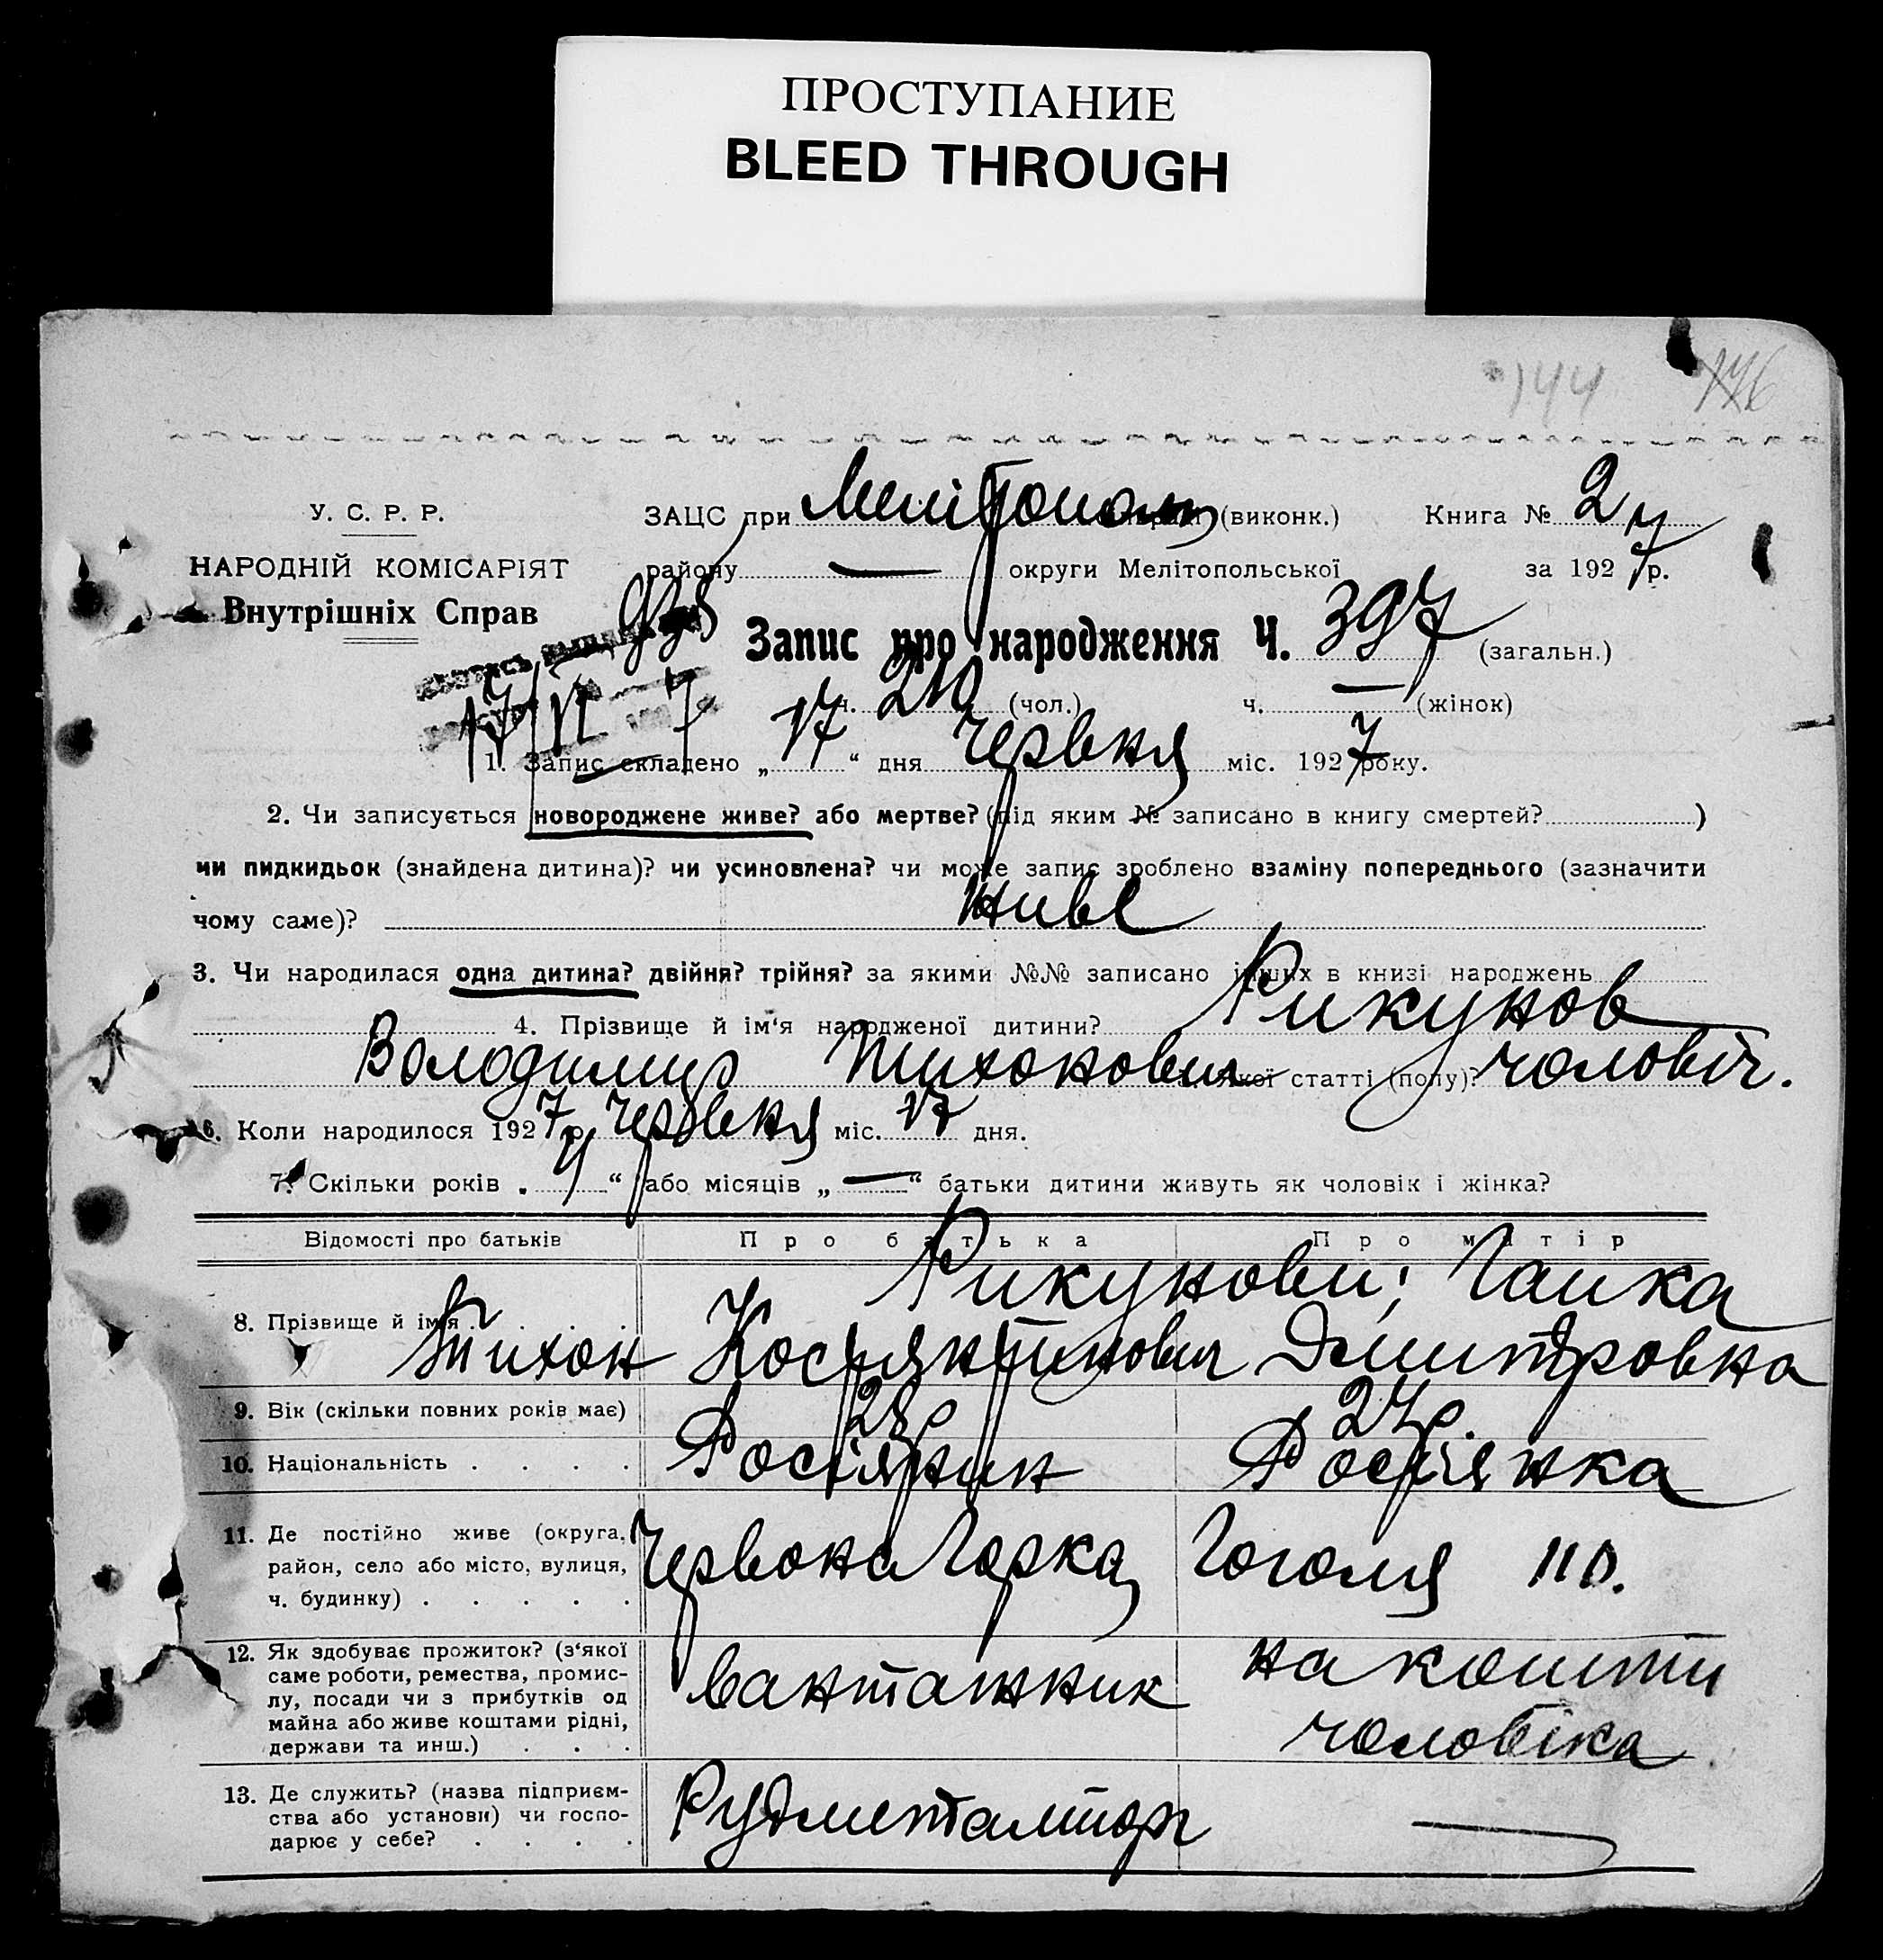 ПРОСТУПАНИЕ
BLEED THROUGH
144 146
У. С. Р. Р. ЗАЦС при Мелітополь (виконк.) Книга № 2
НАРОДНІЙ КОМІСАРІЯТ району — округи Мелітопольської за 1927 р.
Внутрішніх Справ
Запис про народження Ч. 397 (загальн.)
ч. 210 (чол.) ч. — (жінок)
17/VI 7
1. Запис складено „17“ дня Червня міс. 1927 року.
2. Чи записується новороджене живе? або мертве? (під яким № записано в книгу смертей? )
чи пидкидьок (знайдена дитина)? чи усиновлена? чи може запис зроблено взаміну попереднього (зазначити
чому саме)? живе
3. Чи народилася одна дитина? двійня? трійня? за якими №№ записано інших в книзі народжень
4. Прізвище й ім‘я народженої дитини? Рикунов
Володимир Тихонович якої статті (полу)? чоловіч.
6. Коли народилося 1927 р. Червня міс. 17 дня.
7. Скільки років „ 4 “ або місяців „ — “ батьки дитини живуть як чоловік і жінка?
Відомості про батьків Про батька Про матір
Рикунови; Ганка
8. Прізвище й ім‘я . . . . Тихон Костянтинович Дмитровна
9. Вік (скільки повних років має) 28 р 24 р.
10. Національність . . . . Росіянин Росіянка
11. Де постійно живе (округа, район, село або місто, вулиця, ч. будинку) . . . . . Червона Горка Гоголя 110.
12. Як здобуває прожиток? (з‘якої
саме роботи, ремества, промис-
лу, посади чи з прибутків од
майна або живе коштами рідні,
держави та инш.) . . . вантажник на кошти
чоловіка
13. Де служить? (назва підприєм-
ства або установи) чи госпо-
дарює у себе? . . . . Рудметалторг —